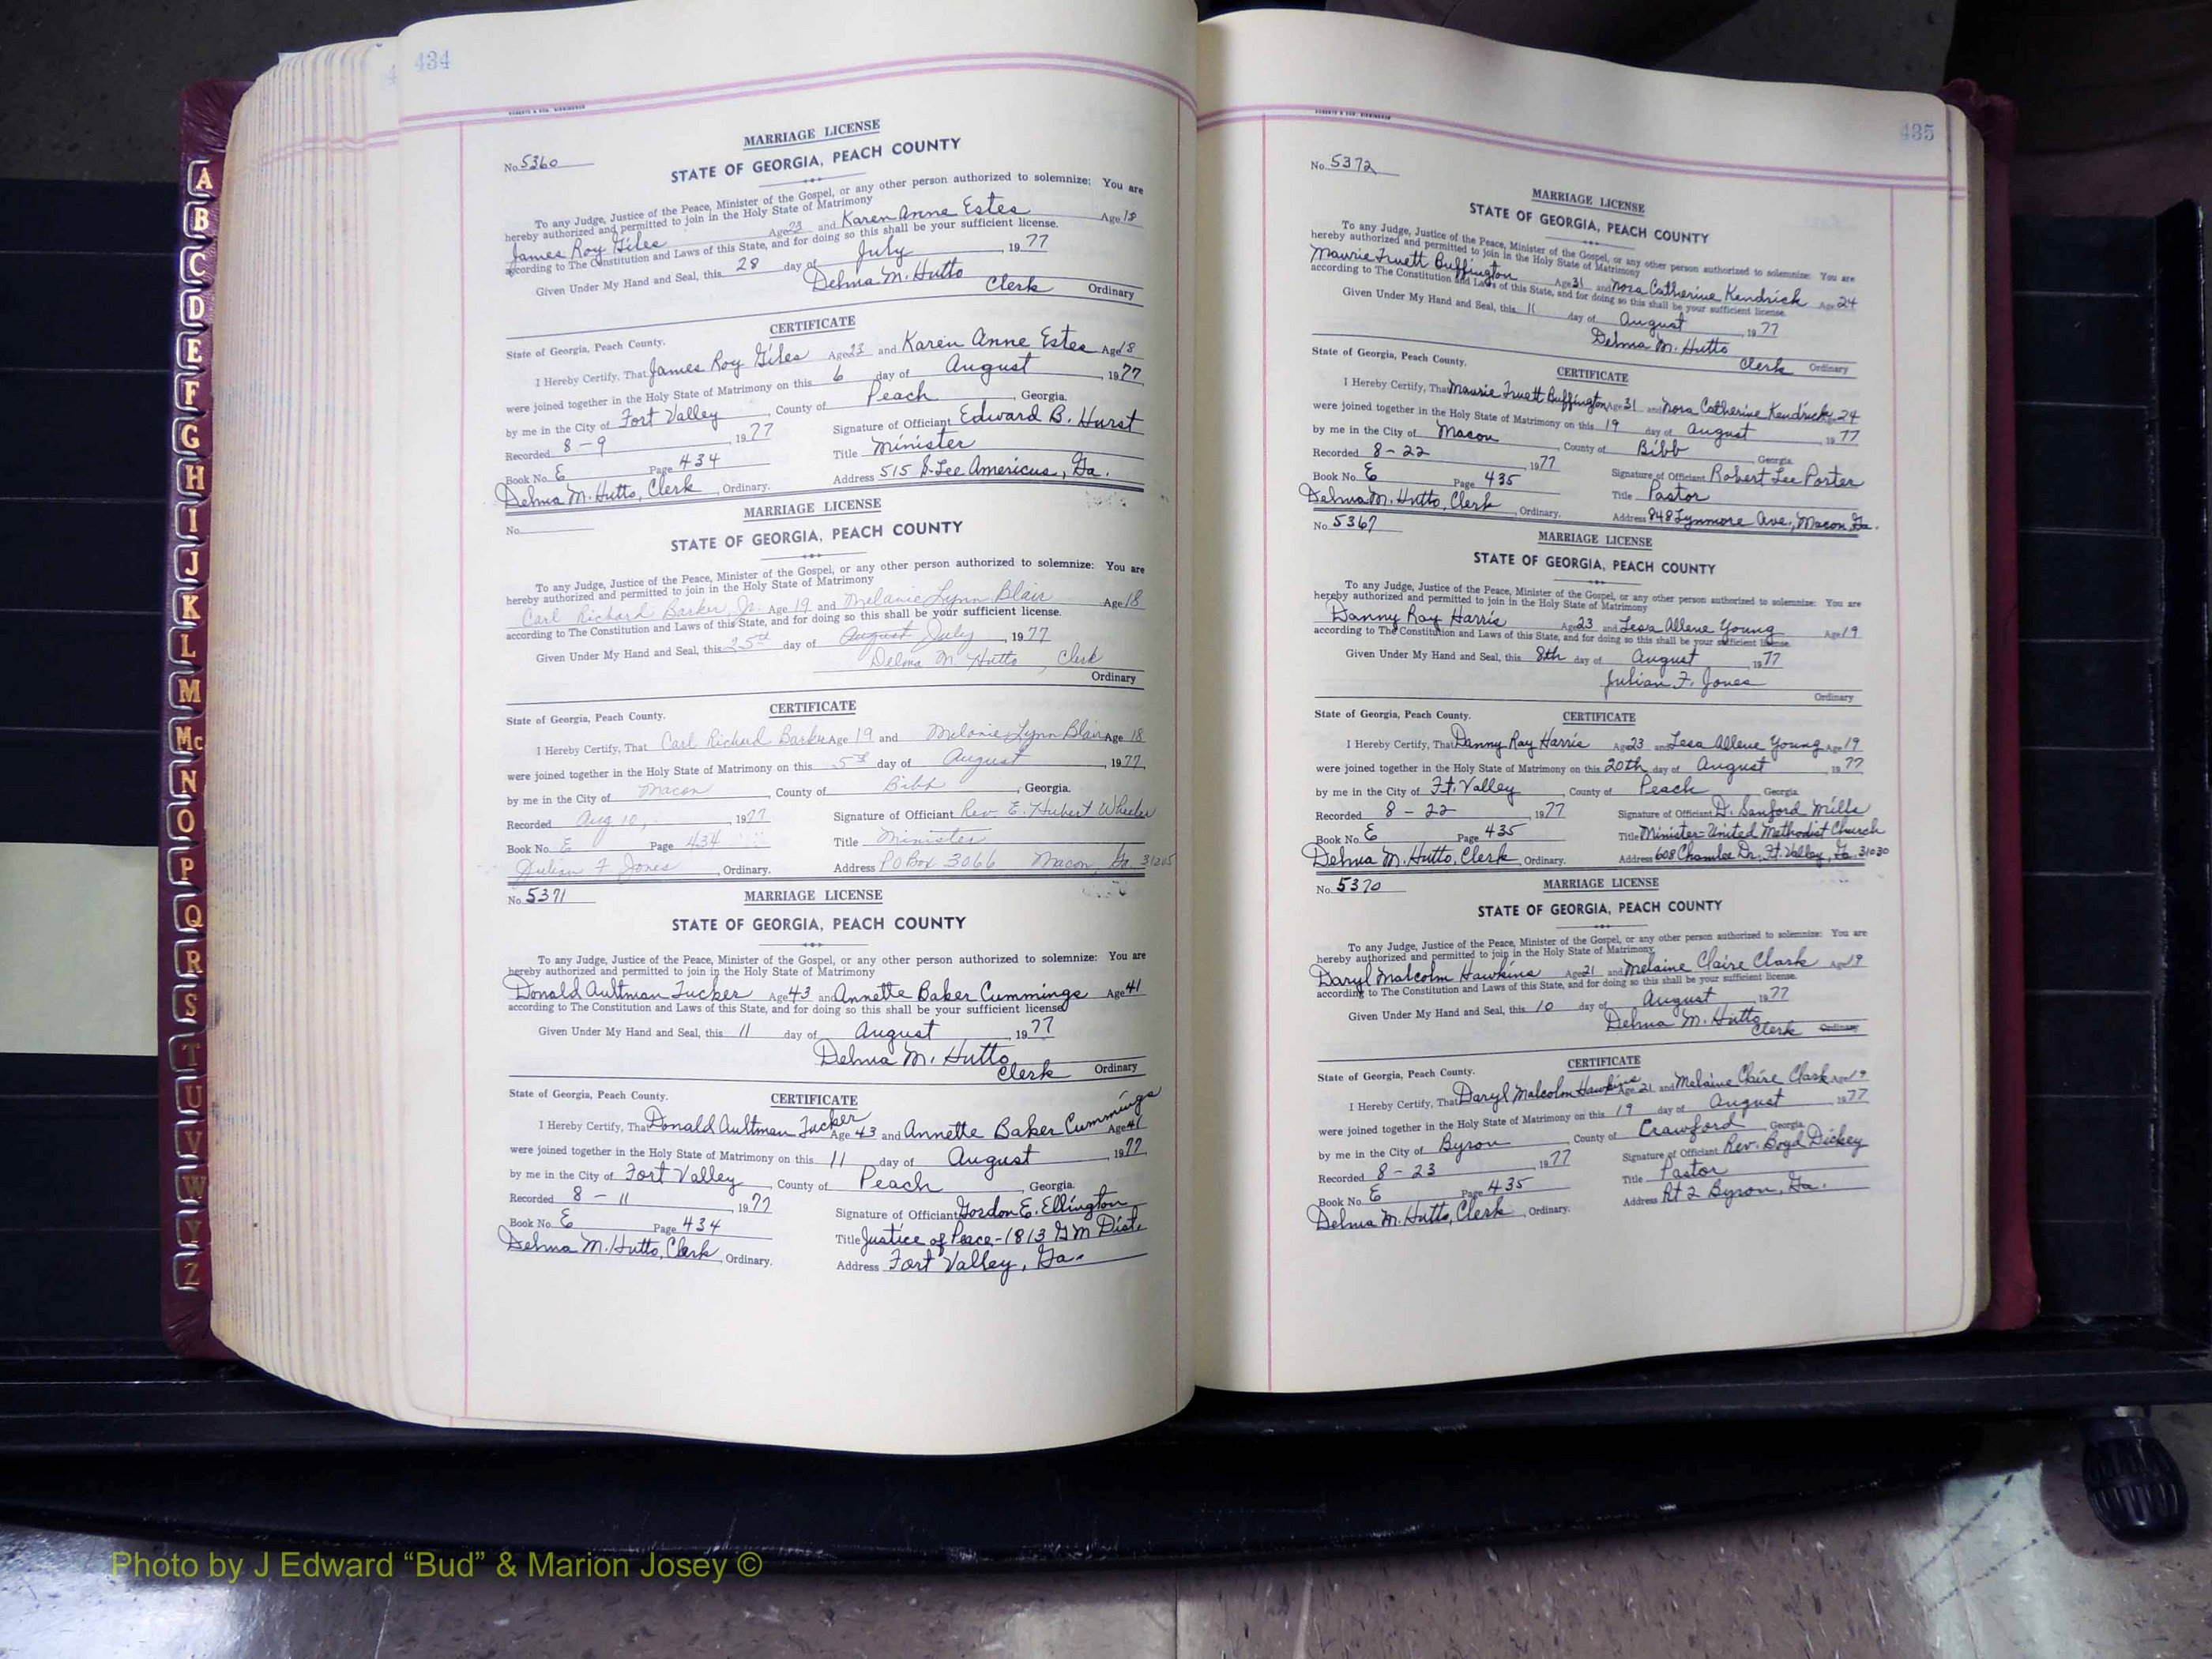 434
ROBERTS & SON, BIRMINGHAM
MARRIAGE LICENSE
No. 5360
STATE OF GEORGIA, PEACH COUNTY
To any Judge, Justice of the Peace, Minister of the Gospel, or any other person authorized to solemnize: You are
hereby authorized and permitted to join in the Holy State of Matrimony
James Roy Giles Age 23 and Karen Anne Estes Age 18
according to The Constitution and Laws of this State, and for doing so this shall be your sufficient license.
Given Under My Hand and Seal, this 28 day of July, 1977
Delma M. Hutto
Clerk Ordinary
CERTIFICATE
State of Georgia, Peach County.
I Hereby Certify, That James Roy Giles Age 23 and Karen Anne Estes Age 18
were joined together in the Holy State of Matrimony on this 6 day of August, 1977
by me in the City of Fort Valley, County of Peach, Georgia.
Recorded 8-9 1977
Signature of Officiant Edward B. Hurst
Title Minister
Book No. E Page 434
Address 515 S. Lee Americus, Ga.
Delma M. Hutto, Clerk, Ordinary.
MARRIAGE LICENSE
No.
STATE OF GEORGIA, PEACH COUNTY
To any Judge, Justice of the Peace, Minister of the Gospel, or any other person authorized to solemnize: You are
hereby authorized and permitted to join in the Holy State of Matrimony
Carl Richard Barker, Jr. Age 19 and Melanie Lynn Blair Age 18
according to The Constitution and Laws of this State, and for doing so this shall be your sufficient license.
Given Under My Hand and Seal, this 25th day of August July, 1977
Delma M Hutto, Clerk
Ordinary
CERTIFICATE
State of Georgia, Peach County.
I Hereby Certify, That Carl Richard Barker Age 19 and Melanie Lynn Blair Age 18
were joined together in the Holy State of Matrimony on this 5th day of August, 1977
by me in the City of Macon, County of Bibb, Georgia.
Recorded Aug 10, 1977
Signature of Officiant Rev E. Hubert Wheeler
Book No. E Page 434
Title Minister
Julian F Jones, Ordinary.
Address PO Box 3066 Macon, Ga. 31205
No. 5371
MARRIAGE LICENSE
STATE OF GEORGIA, PEACH COUNTY
To any Judge, Justice of the Peace, Minister of the Gospel, or any other person authorized to solemnize: You are
hereby authorized and permitted to join in the Holy State of Matrimony
Donald Aultman Tucker Age 43 and Annette Baker Cummings Age 41
according to The Constitution and Laws of this State, and for doing so this shall be your sufficient license
Given Under My Hand and Seal, this 11 day of August, 1977
Delma M. Hutto
Clerk Ordinary
CERTIFICATE
State of Georgia, Peach County.
I Hereby Certify, That Donald Aultman Tucker Age 43 and Annette Baker Cummings Age 41
were joined together in the Holy State of Matrimony on this 11 day of August, 1977
by me in the City of Fort Valley, County of Peach, Georgia.
Recorded 8-11 1977
Signature of Officiant Gordon E. Ellington
Book No. E Page 434
Title Justice of Peace-1813 GM Dist.
Delma M. Hutto, Clerk, Ordinary.
Address Fort Valley, Ga.
435
ROBERTS & SON, BIRMINGHAM
No. 5372
MARRIAGE LICENSE
STATE OF GEORGIA, PEACH COUNTY
To any Judge, Justice of the Peace, Minister of the Gospel, or any other person authorized to solemnize: You are
hereby authorized and permitted to join in the Holy State of Matrimony
Maurie Truett Buffington Age 31 and Nora Catherine Kendrick Age 24
according to The Constitution and Laws of this State, and for doing so this shall be your sufficient license.
Given Under My Hand and Seal, this 11 day of August 1977
Delma M. Hutto
Clerk Ordinary
State of Georgia, Peach County.
CERTIFICATE
I Hereby Certify, That Maurie Truett Buffington Age 31 and Nora Catherine Kendrick 24
were joined together in the Holy State of Matrimony on this 19 day of August 1977
by me in the City of Macon, County of Bibb, Georgia
Recorded 8-22 1977
Signature of Officiant Robert Lee Porter
Book No. E Page 435
Title Pastor
Delma M. Hutto, Clerk, Ordinary.
Address 848 Lynmore Ave., Macon, Ga.
No. 5367
MARRIAGE LICENSE
STATE OF GEORGIA, PEACH COUNTY
To any Judge, Justice of the Peace, Minister of the Gospel, or any other person authorized to solemnize: You are
hereby authorized and permitted to join in the Holy State of Matrimony
Danny Ray Harris Age 23 and Lesa Allene Young Age 19
according to The Constitution and Laws of this State, and for doing so this shall be your sufficient license.
Given Under My Hand and Seal, this 8th day of August, 1977
Julian F. Jones
Ordinary
State of Georgia, Peach County.
CERTIFICATE
I Hereby Certify, That Danny Ray Harris Age 23 and Lesa Allene Young Age 19
were joined together in the Holy State of Matrimony on this 20th day of August 1977
by me in the City of Ft. Valley, County of Peach Georgia
Recorded 8-22 1977
Signature of Officiant D. Sanford Mills
Book No. E Page 435
Title Minister-United Methodist Church
Delma M. Hutto, Clerk, Ordinary.
Address 608 Chamlee Dr. Ft. Valley, Ga. 31030
No. 5370
MARRIAGE LICENSE
STATE OF GEORGIA, PEACH COUNTY
To any Judge, Justice of the Peace, Minister of the Gospel, or any other person authorized to solemnize: You are
hereby authorized and permitted to join in the Holy State of Matrimony
Daryl Malcolm Hawkins Age 21 and Melaine Claire Clark Age 19
according to The Constitution and Laws of this State, and for doing so this shall be your sufficient license.
Given Under My Hand and Seal, this 10 day of August 1977
Delma M. Hutto
Clerk Ordinary
CERTIFICATE
State of Georgia, Peach County.
I Hereby Certify, That Daryl Malcolm Hawkins Age 21 and Melaine Claire Clark Age 19
were joined together in the Holy State of Matrimony on this 19 day of August 1977
by me in the City of Byron, County of Crawford Georgia
Recorded 8-23 1977
Signature of Officiant Rev. Boyd Dickey
Book No. E Page 435
Title Pastor
Delma M. Hutto, Clerk, Ordinary.
Address Rt 2 Byron, Ga.
A
B
C
D
E
F
G
H
I
J
K
L
M
Mc
N
O
P
Q
R
S
T
U
V
W
Y
Z
Photo by J Edward “Bud” & Marion Josey ©